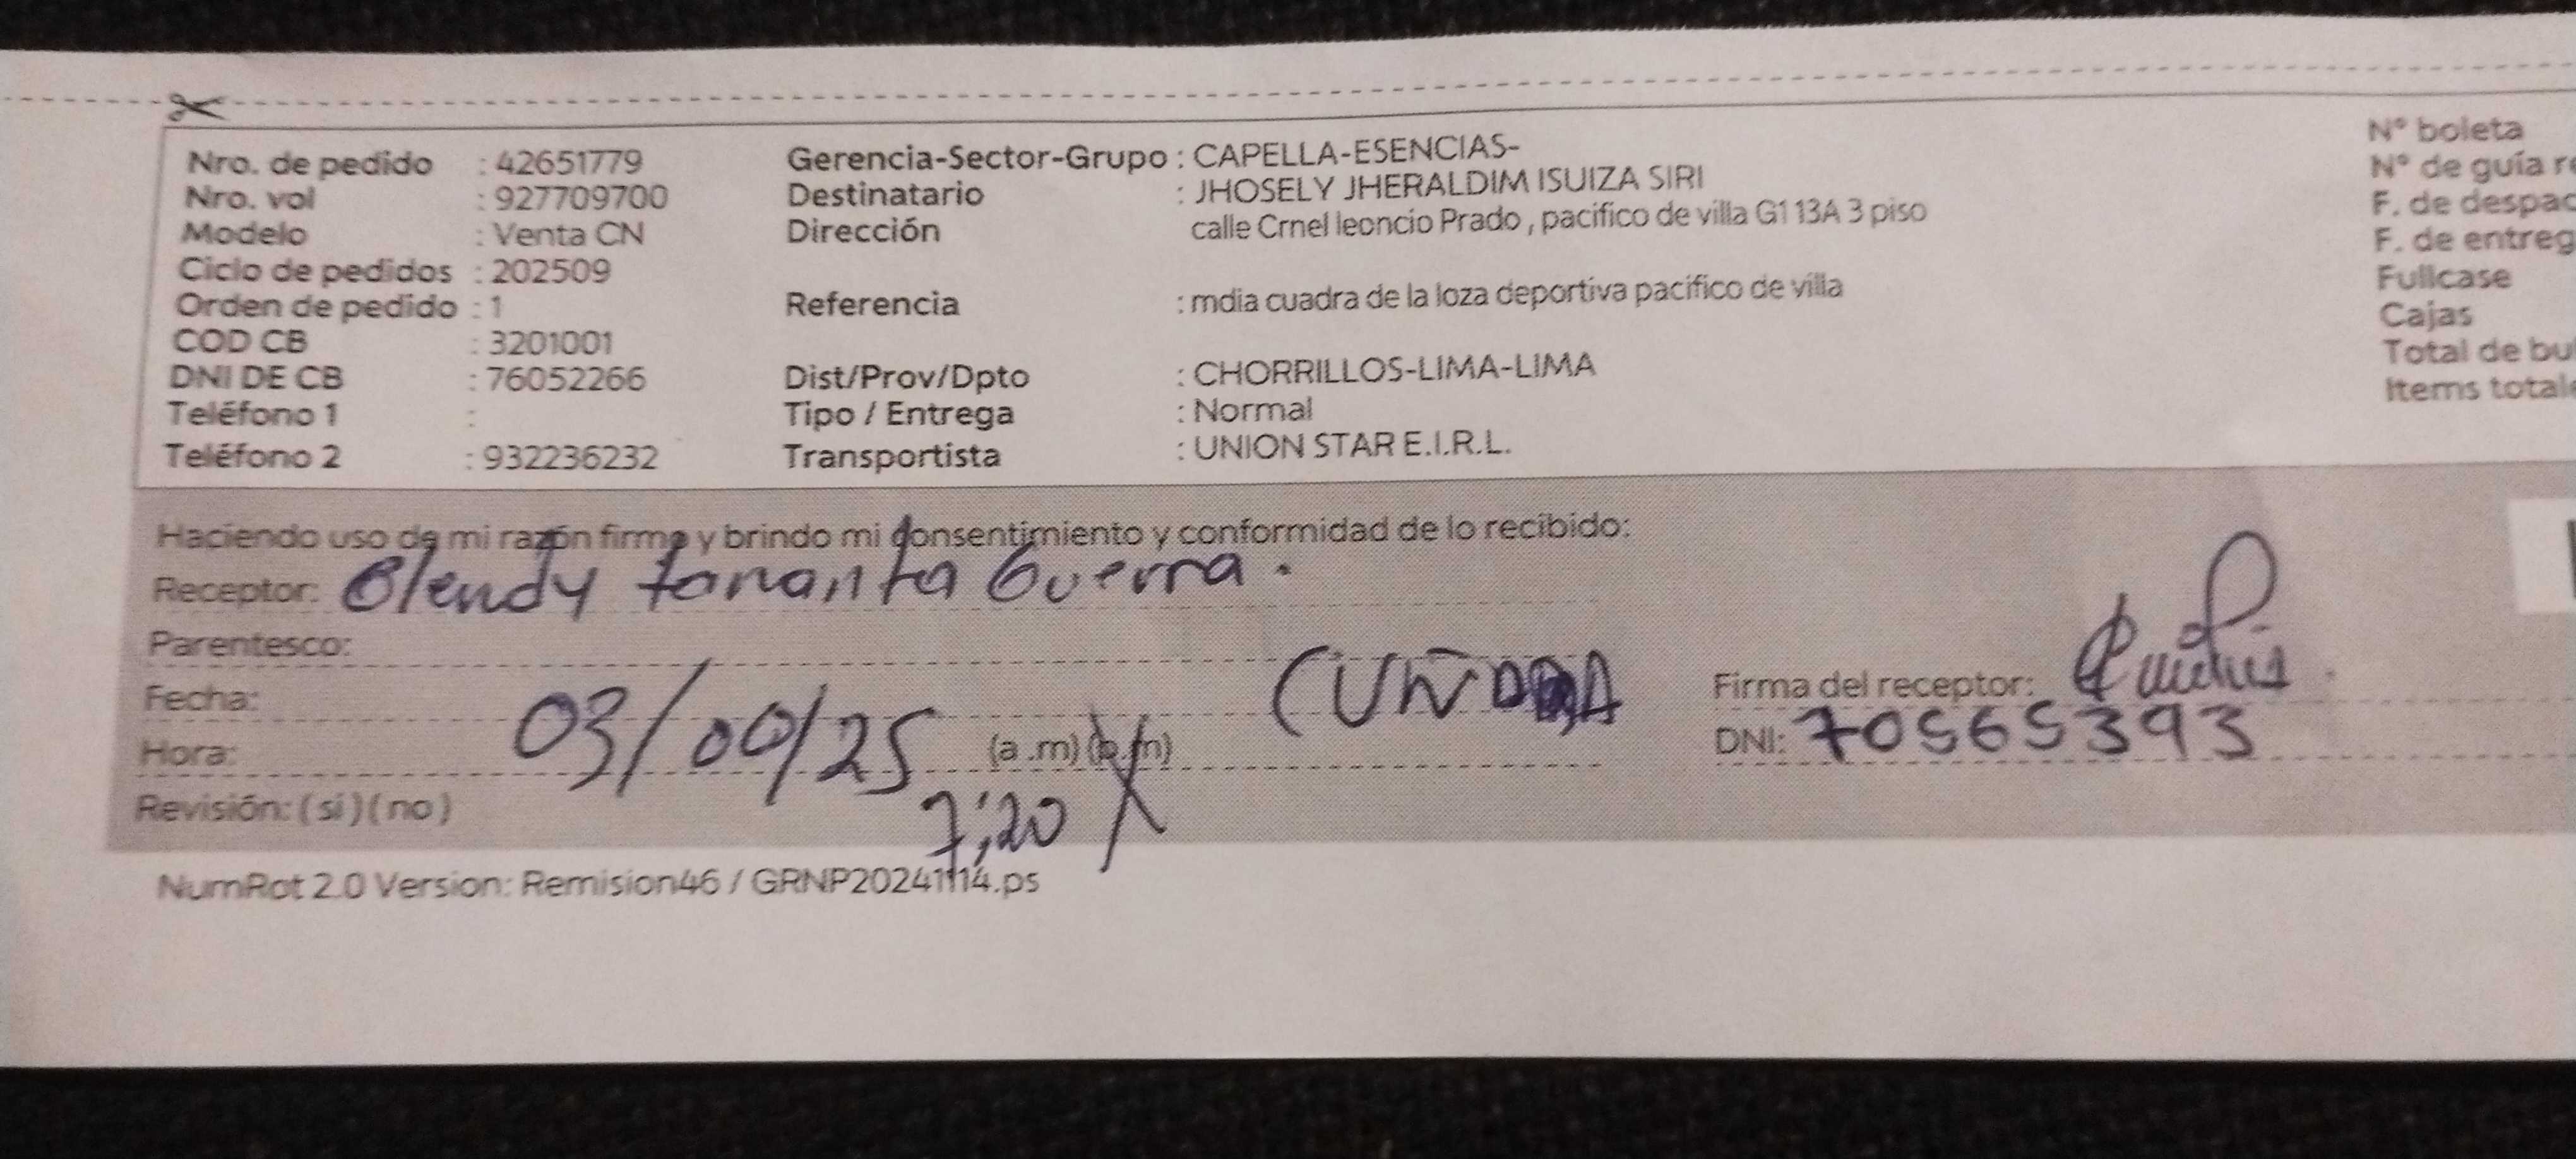 Nro. de pedido : 42651779 Gerencia-Sector-Grupo : CAPELLA-ESENCIAS- N° boleta
Nro. vol : 927709700 Destinatario : JHOSELY JHERALDIM ISUIZA SIRI N° de guía
Modelo : Venta CN Dirección calle Crnel leoncio Prado , pacifico de villa G1 13A 3 piso F. de despac
Ciclo de pedidos : 202509 F. de entreg
Orden de pedido : 1 Referencia : mdia cuadra de la loza deportiva pacifico de villa Fullcase
COD CB : 3201001 Cajas
DNI DE CB : 76052266 Dist/Prov/Dpto : CHORRILLOS-LIMA-LIMA Total de bul
Teléfono 1 : Tipo / Entrega : Normal Items total
Teléfono 2 : 932236232 Transportista : UNION STAR E.I.R.L.
Haciendo uso de mi razón firmo y brindo mi consentimiento y conformidad de lo recibido:
Receptor: Blendy Guerra.
Parentesco:
Fecha: 03/00/25 Firma del receptor:
Hora: (a .m) (p.m) DNI: 70565393
7:20
Revisión: ( si ) ( no )
NumRot 2.0 Version: Remision46 / GRNP20241114.ps